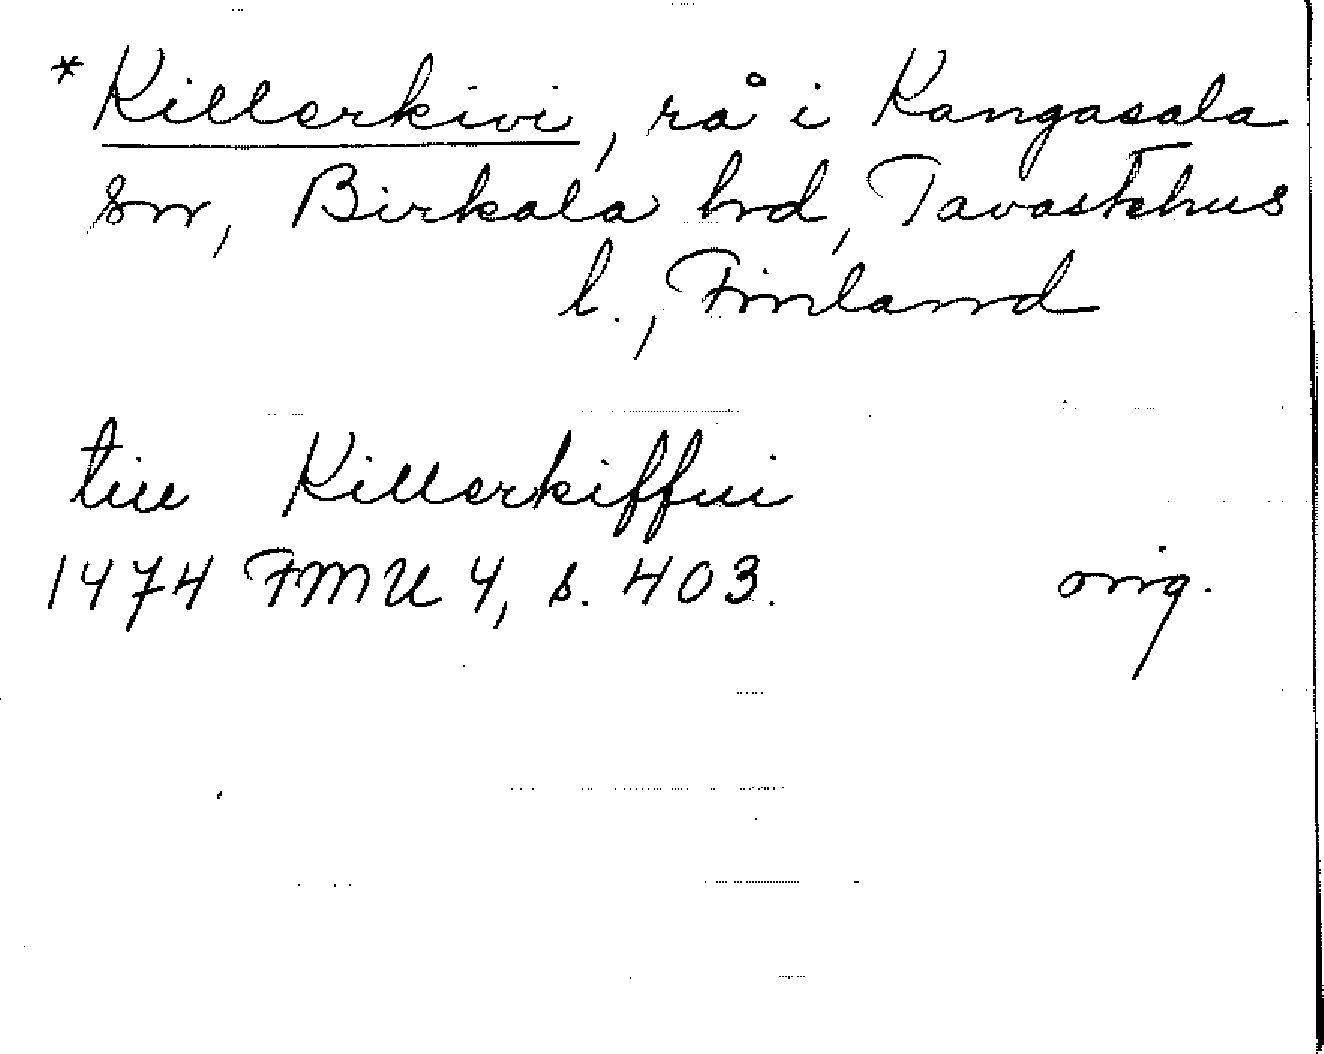 *Killerkivi, rå i Kangasala
sn, Birkala hrd, Tavastehus
l., Finland
till Killerkiffui
1474 FMU 4, s. 403. orig.